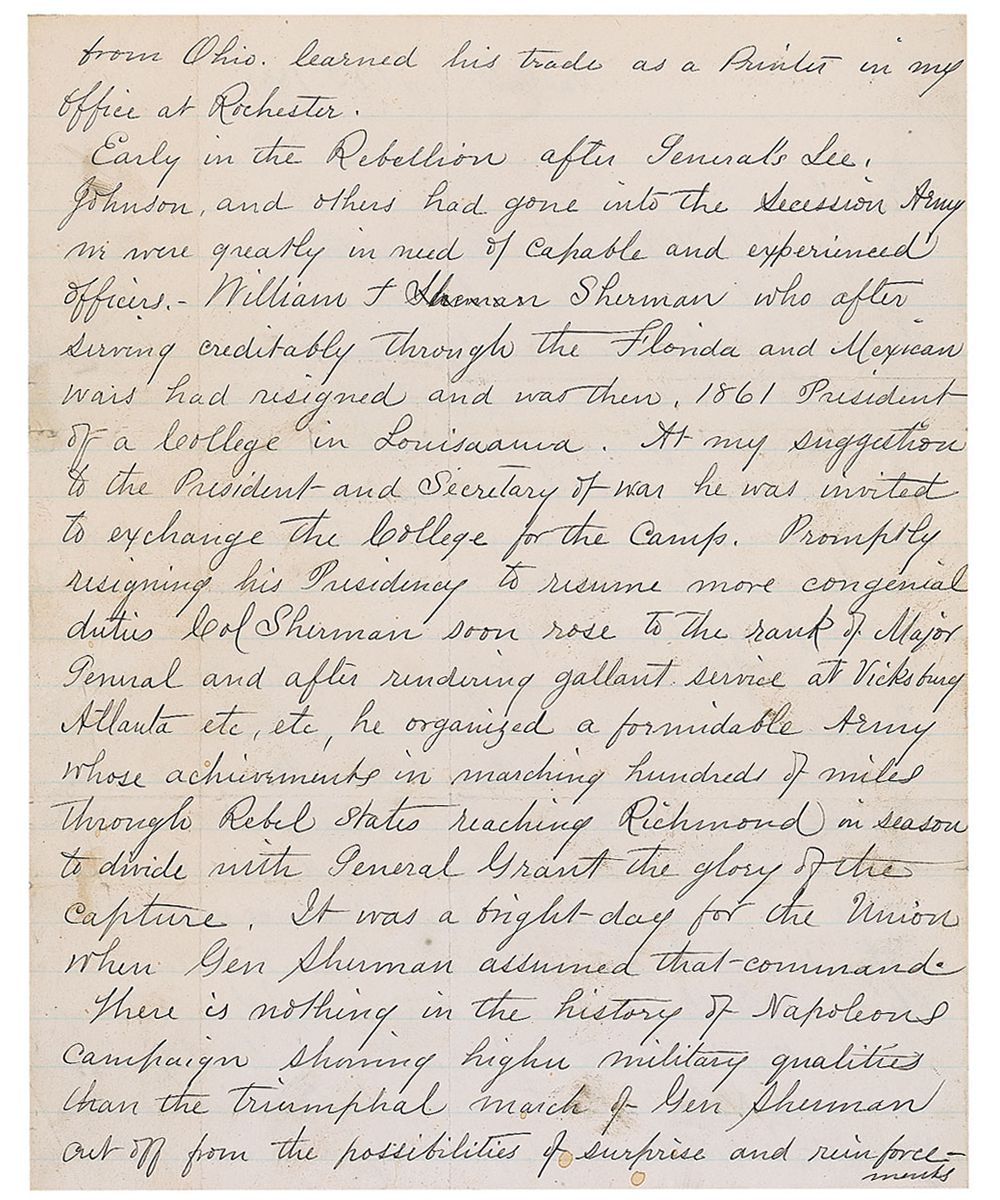 from Ohio. learned his trade as a Printer in my
office at Rochester.
Early in the Rebellion after General's Lee,
Johnson, and others had gone into the Secession Army
we were greatly in need of capable and experienced
officers. - William T Sherman Sherman who after
serving creditably through the Florida and Mexican
wars had resigned and was then, 1861 President
of a College in Louisaanna. At my suggestion
to the President and Secretary of war he was invited
to exchange the College for the Camp. Promptly
resigning his Presidency to resume more congenial
duties Col Sherman soon rose to the rank of Major
General and after rendering gallant service at Vicksburg
Atlanta etc, etc, he organized a formidable Army
whose achievements in marching hundreds of miles
through Rebel States reaching Richmond in season
to divide with General Grant the glory of the
capture. It was a bright day for the Union
when Gen Sherman assumed that command.
There is nothing in the history of Napoleons
Campaign showing higher military qualities
than the triumphal march of Gen Sherman
cut off from the possibilities of surprise and reinforce-
ments